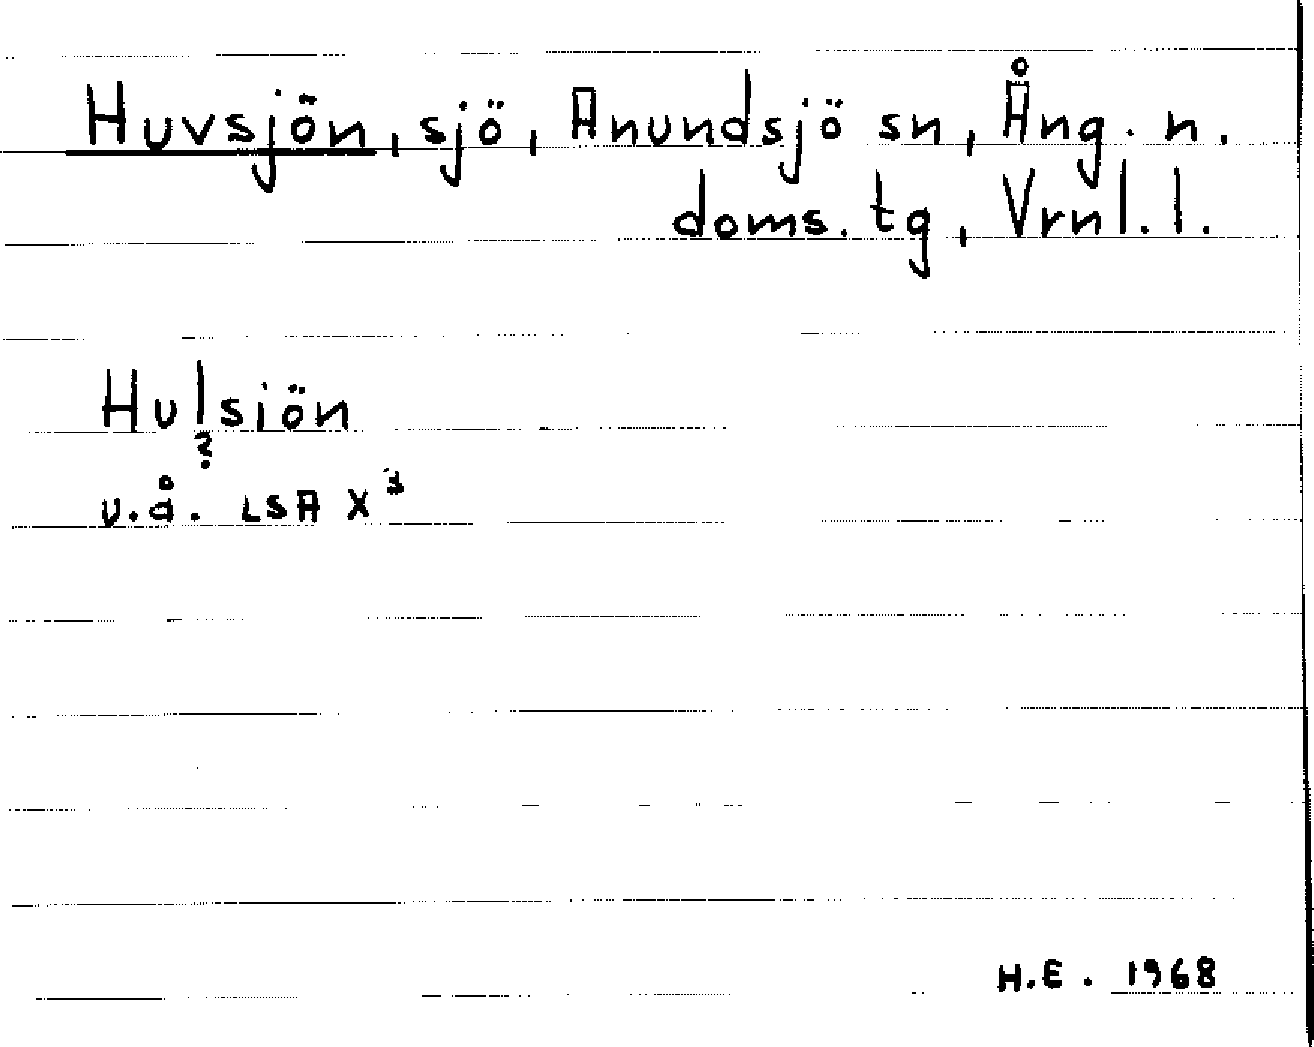 Huvsjön, sjö, Anundsjö sn, Ång. n.
doms. tg, Vrnl. l.
Hulsiön
?
u.å. LSA X³
H.E. 1968